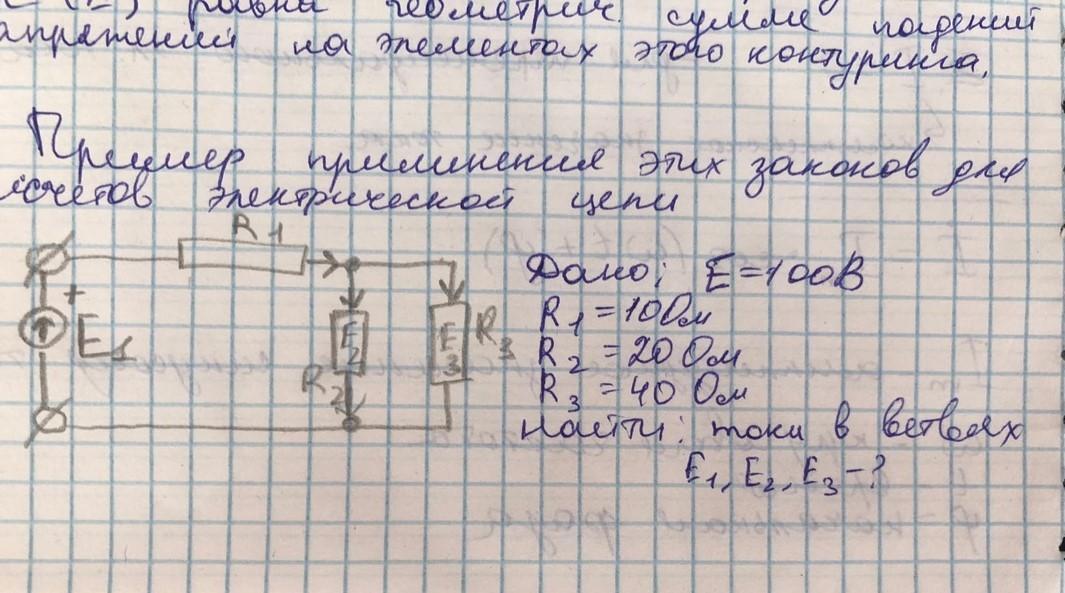 равна геометрич. сумме падений
апряжений на элементах этого контуринга.
Пример приминения этих законов для
счетов электрической цепи
R1
+
E1
E2
R2
E3
R3
Дано: E=100В
R1=10Ом
R2=20 Ом
R3=40 Ом
найти: токи в ветвях
E1, E2, E3-?